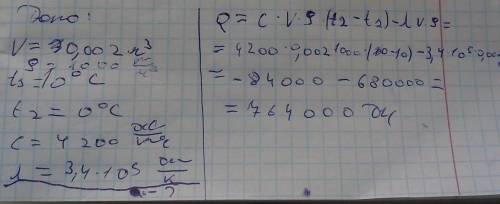 Дано:
V = 0,002 м³
ρ = 1000
t₁ = 10°C
t₂ = 0°C
c = 4200 Дж/кг°C
λ = 3,4·10⁵ Дж/к
Q = c·V·ρ(t₂-t₁)-λVρ=
= 4200·0,002·1000·(0-10)-3,4·10⁵·0,002
= -84000 - 680000 =
= 764000 Дж